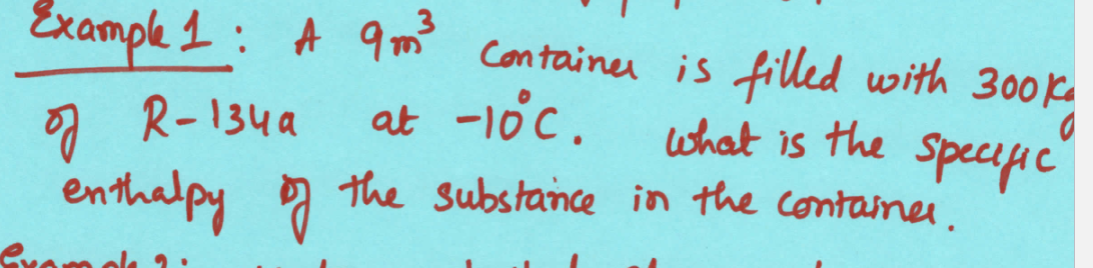 Example 1 : A 9m³ Container is filled with 300Kg
of R-134a at -10°C. What is the specific
enthalpy of the substance in the container.